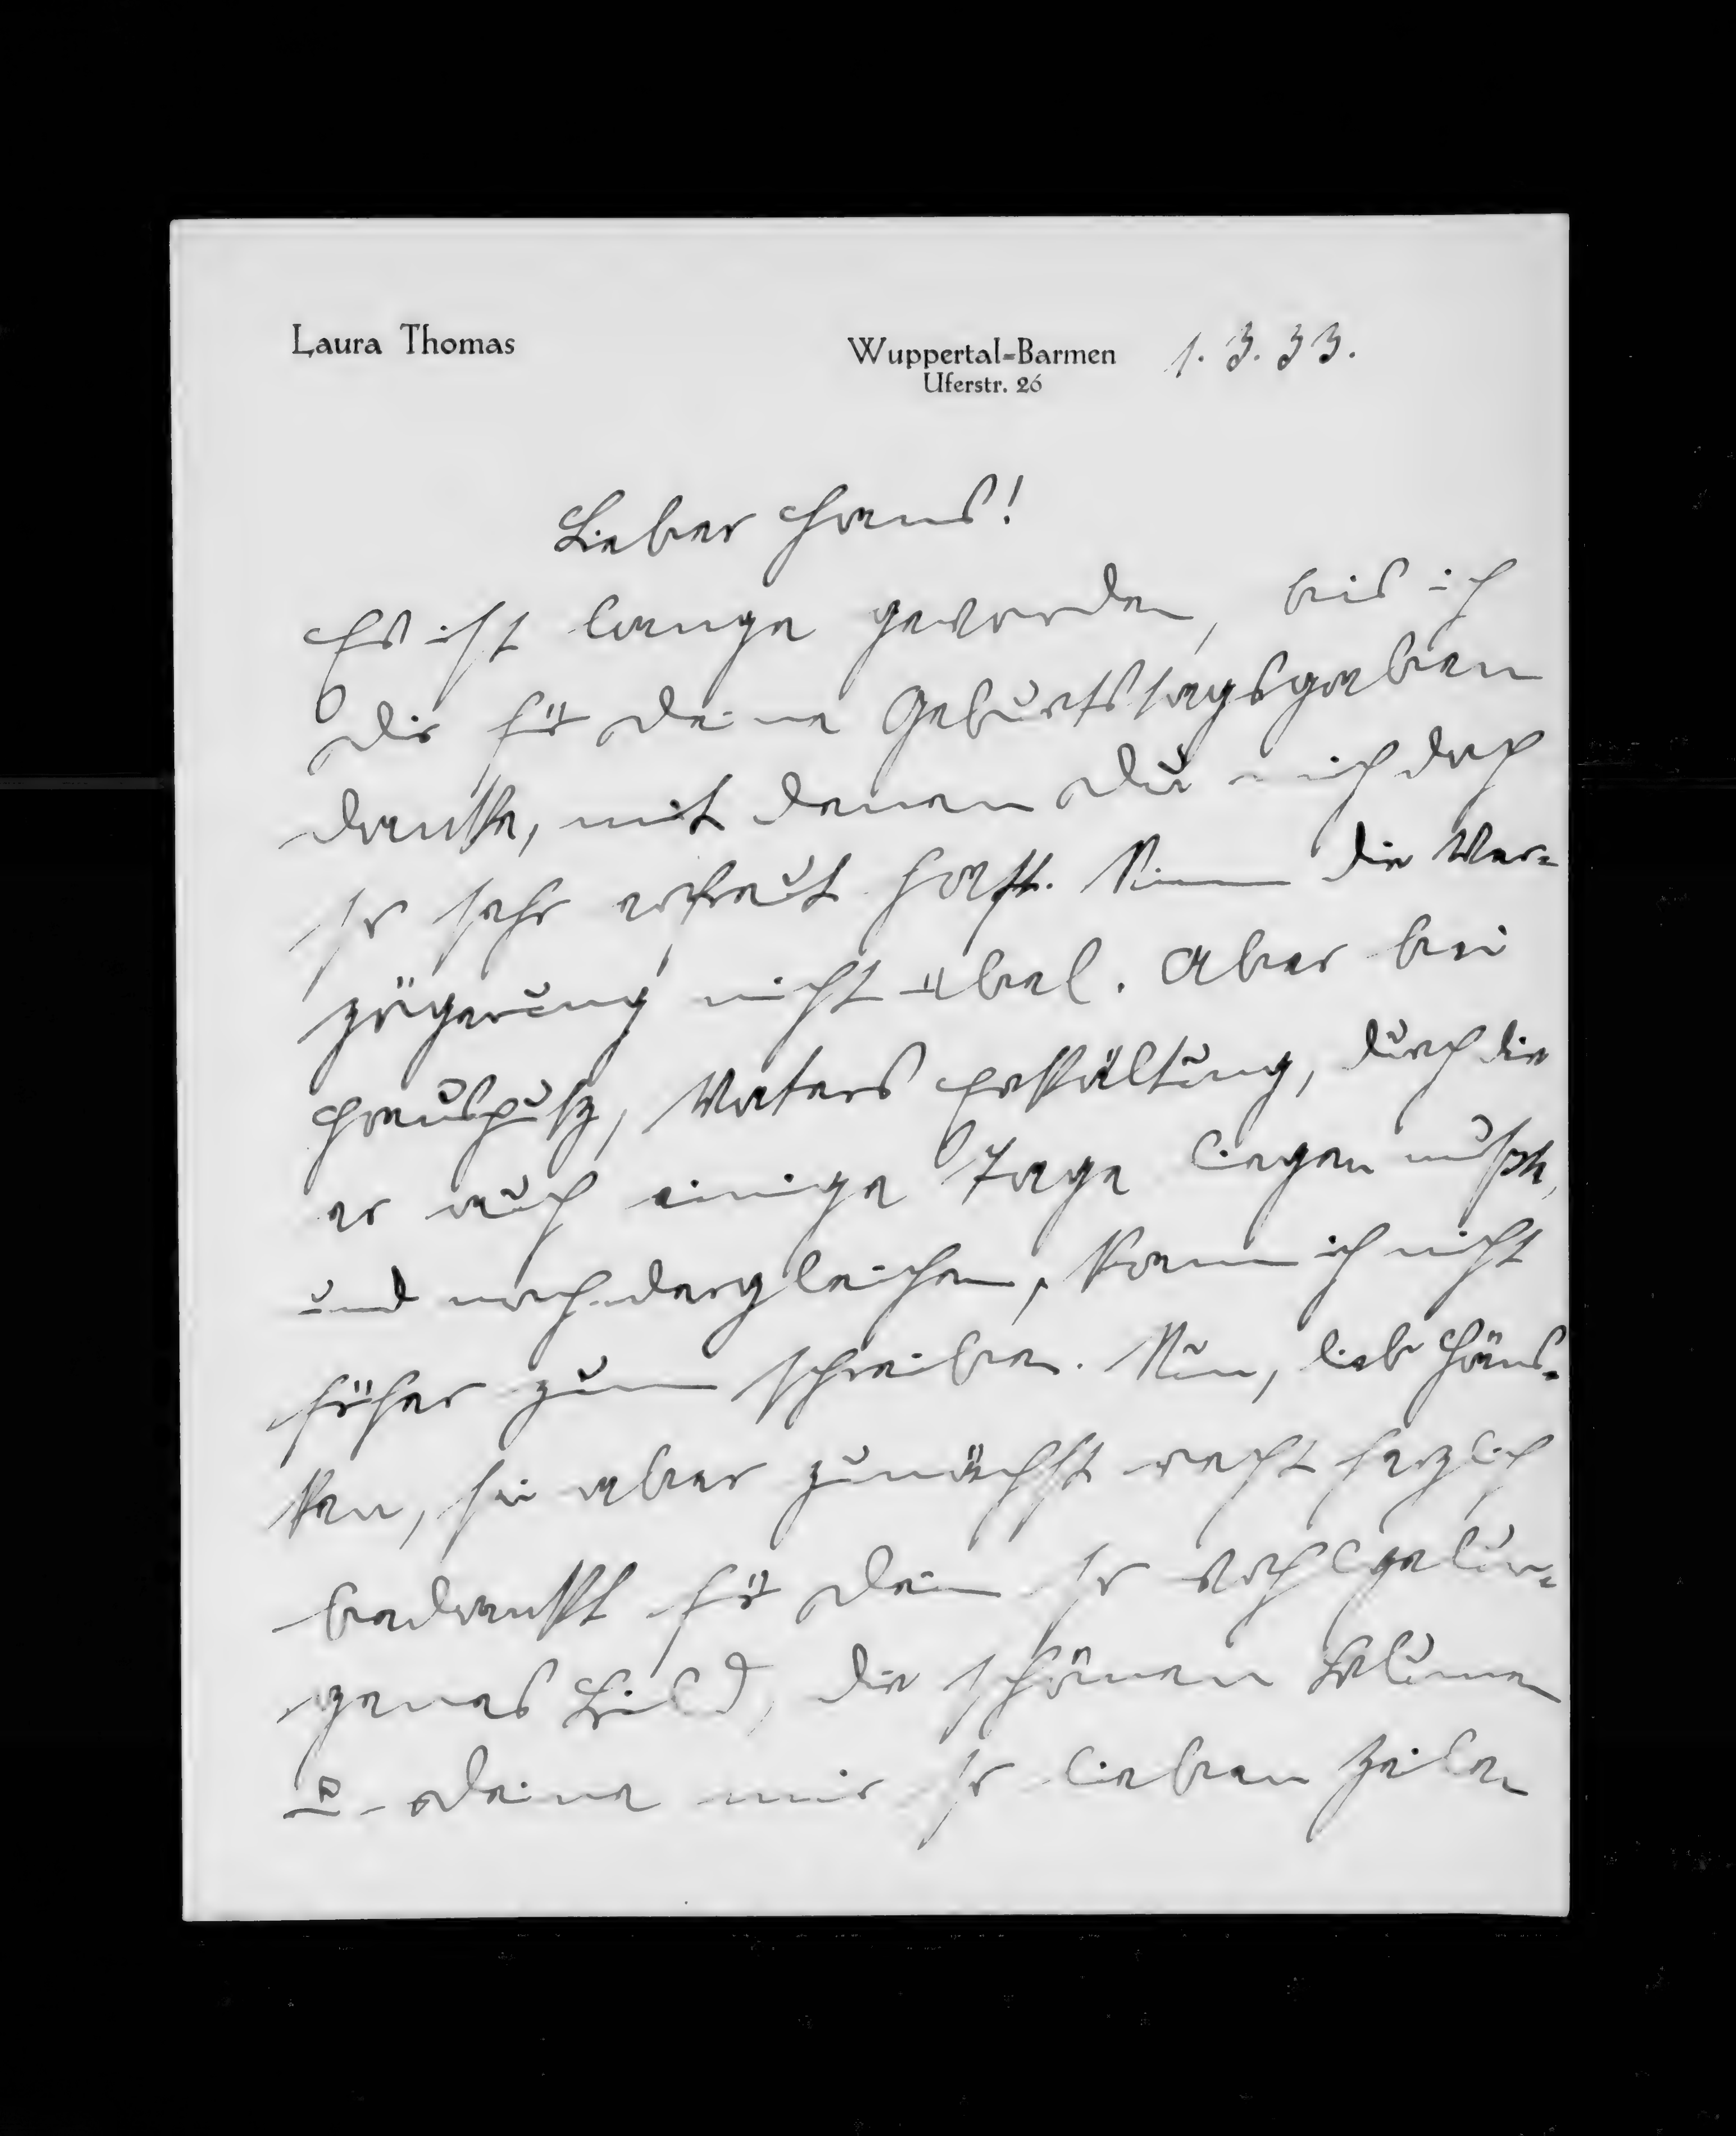 Laura Thomas
Wuppertal-Barmen 1.3.33.
Uferstr. 26
Lieber Hans!
Es ist lange geworden, bis ich
Dir für Deine Geburtstagsgaben
danke, mit denen Du mich doch
so sehr erfreut hast. Nimm die Ver-
zögerung nicht übel. Aber bei
Hausputz, Vaters Erkältung, durch die
er auch einige Tage liegen mußte,
und noch dergleichen, kam ich nicht
früher zum schreiben. Nun, lieb Häns-
ken, sei aber zunächst recht herzlich
bedankt für Dein so wohlgelun-
genes Bild, die schönen Blumen
u. Deine mir so lieben Zeilen